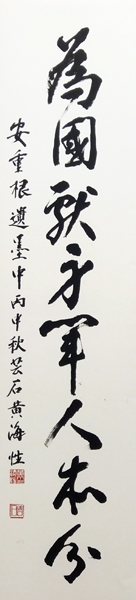 為國獻身軍人本分
安重根遺墨中丙申秋芸石黃海性